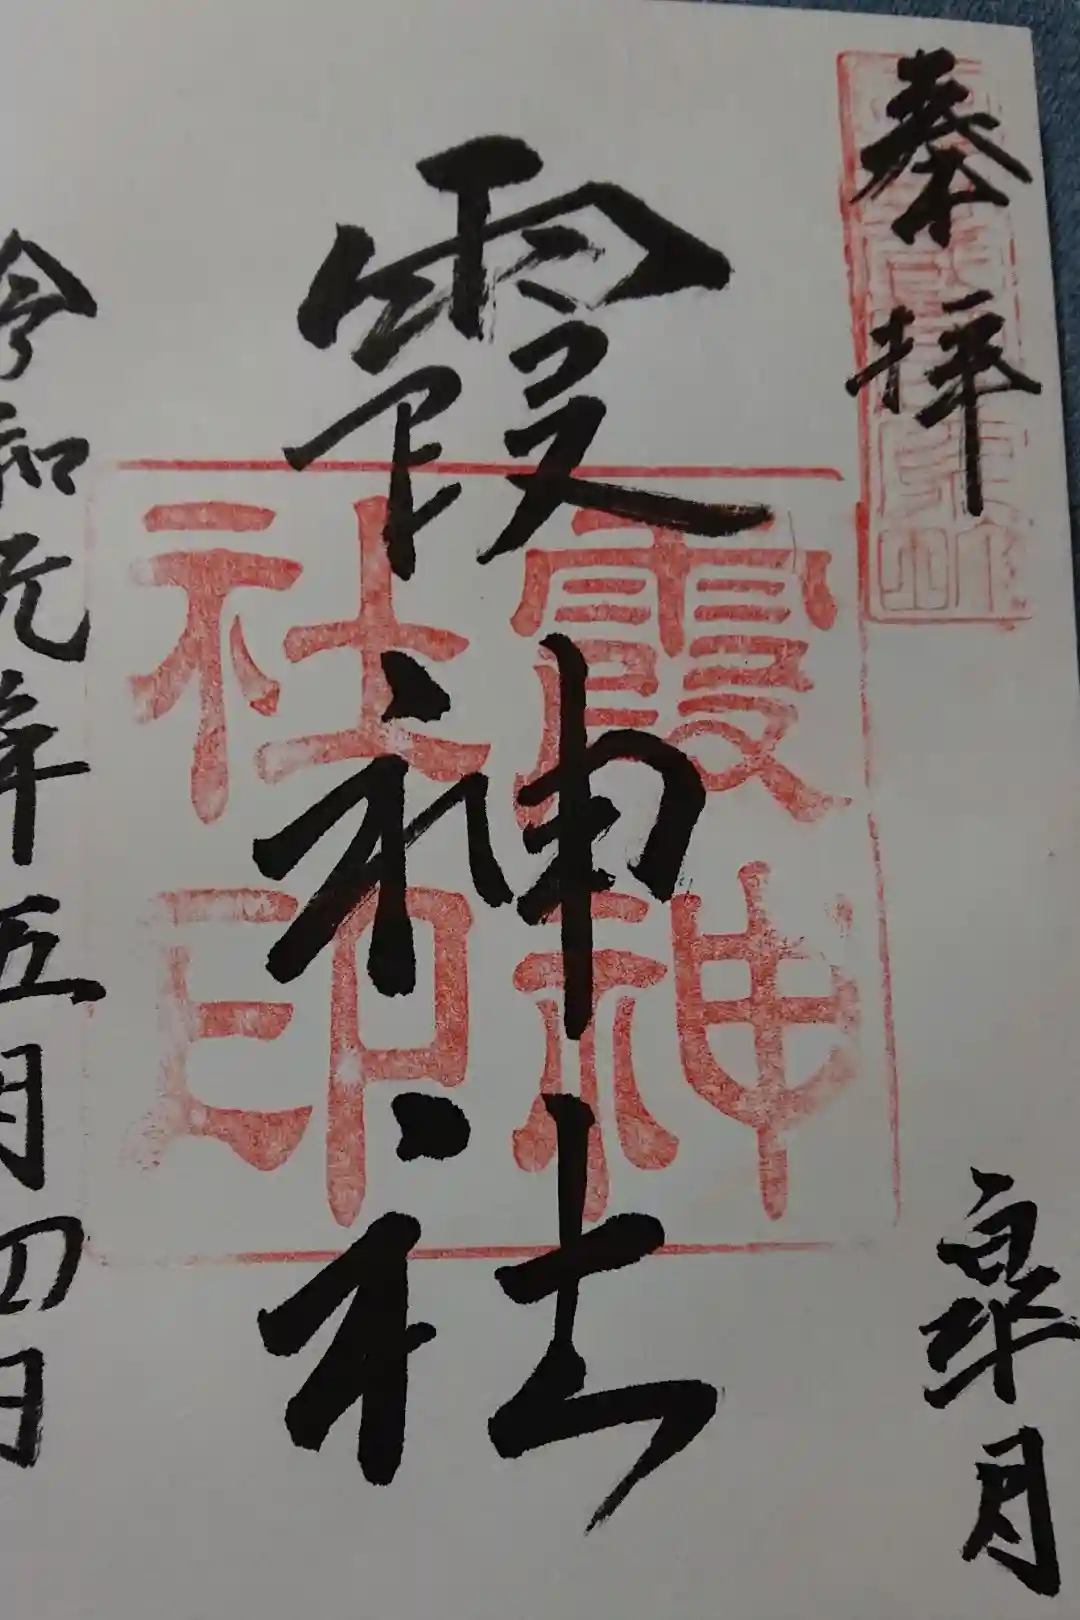 奉拝
皐月
霞神社
霞神
社印
令和元年五月四日